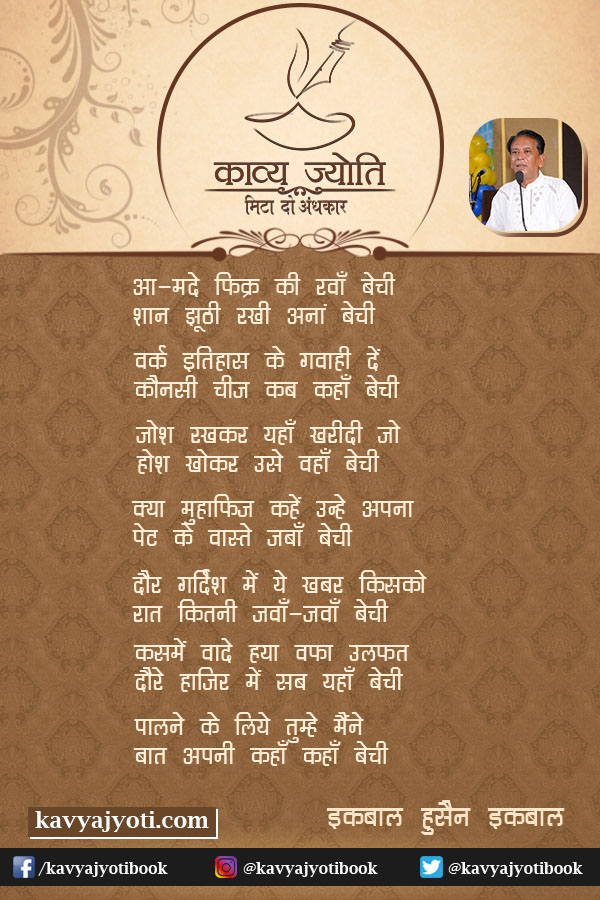 काव्य ज्योति
मिटा दो अंधकार
आ-मदे फिक्र की रवाँ बेची
शान झूठी रखी अनां बेची
वर्क इतिहास के गवाही दें
कौनसी चीज कब कहाँ बेची
जोश रखकर यहाँ खरीदी जो
होश खोकर उसे वहाँ बेची
क्या मुहाफिज कहें उन्हे अपना
पेट के वास्ते जबाँ बेची
दौर गर्दिश में ये खबर किसको
रात कितनी जवाँ-जवाँ बेची
कसमें वादे हया वफा उलफत
दौरे हाजिर में सब यहाँ बेची
पालने के लिये तुम्हे मैंने
बात अपनी कहाँ कहाँ बेची
इकबाल हुसैन इकबाल
kavyajyoti.com
/kavyajyotibook @kavyajyotibook @kavyajyotibook